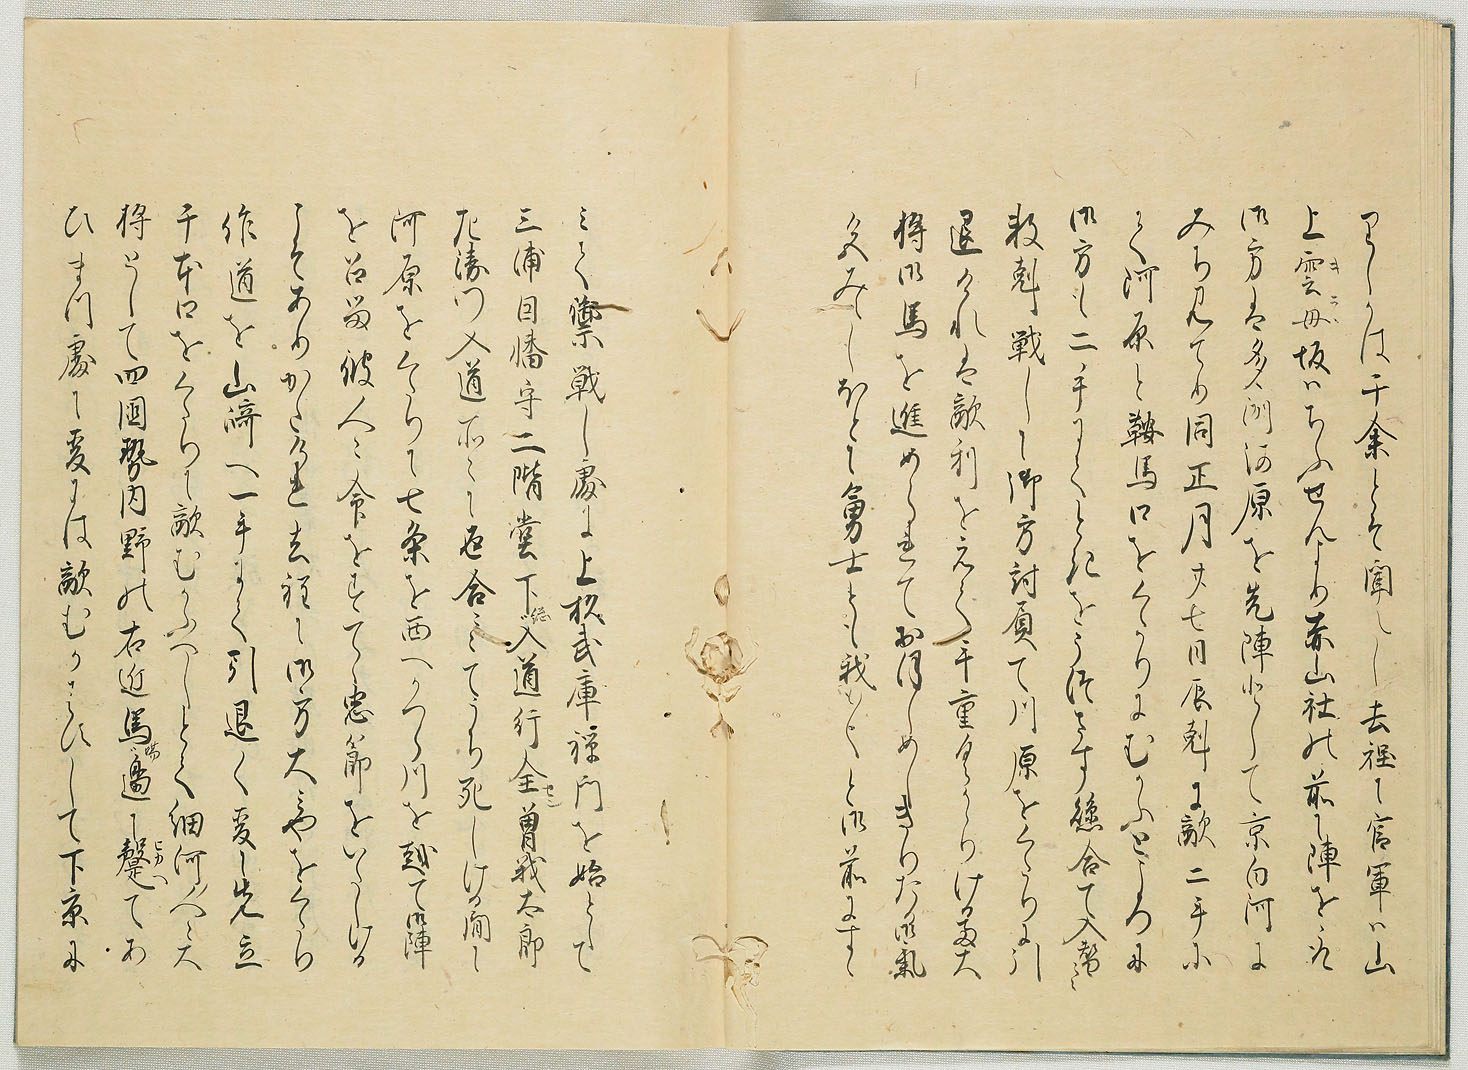 りしかは千余とそ聞えし去程に官軍は山
上雲母坂はちふせんより赤山社の前に陣をとる
御方は多洲河原を先陣として京白河に
みち見てり同正月廿七日辰剋に敵二手に
て河原と鞍馬口をくたりにむかふところに
御方も二手にてときをうつさす懸合て入替々々
数剋戦しに御方討負て川原をくたりに引
退けれは敵利をえて手重くかゝりける間大
将御馬を進められておほしめしきりたる御気
色みえしほとに勇士とも我も〱と御前にすゝ
みて禦戦し處に上杦武庫禅門を始として
三浦因幡守二階堂下総入道行全曽我太郎
左衛門入道所々に返合々々てうち死しける間に
河原をくたりに七条を西へかつら川を越て御陣
を召る彼人々命をすてゝ忠節をいたしける
こそありかたけれ去程に御方大みやをくたり
作道を山崎へ一手にて引退く爰に先立
千本口をくたりに敵むかふへしとて細河人々大
将として四国勢内野の右近馬場邉に[ひかへ]てあ
ひまつ處に爰には敵むかはすして下京に